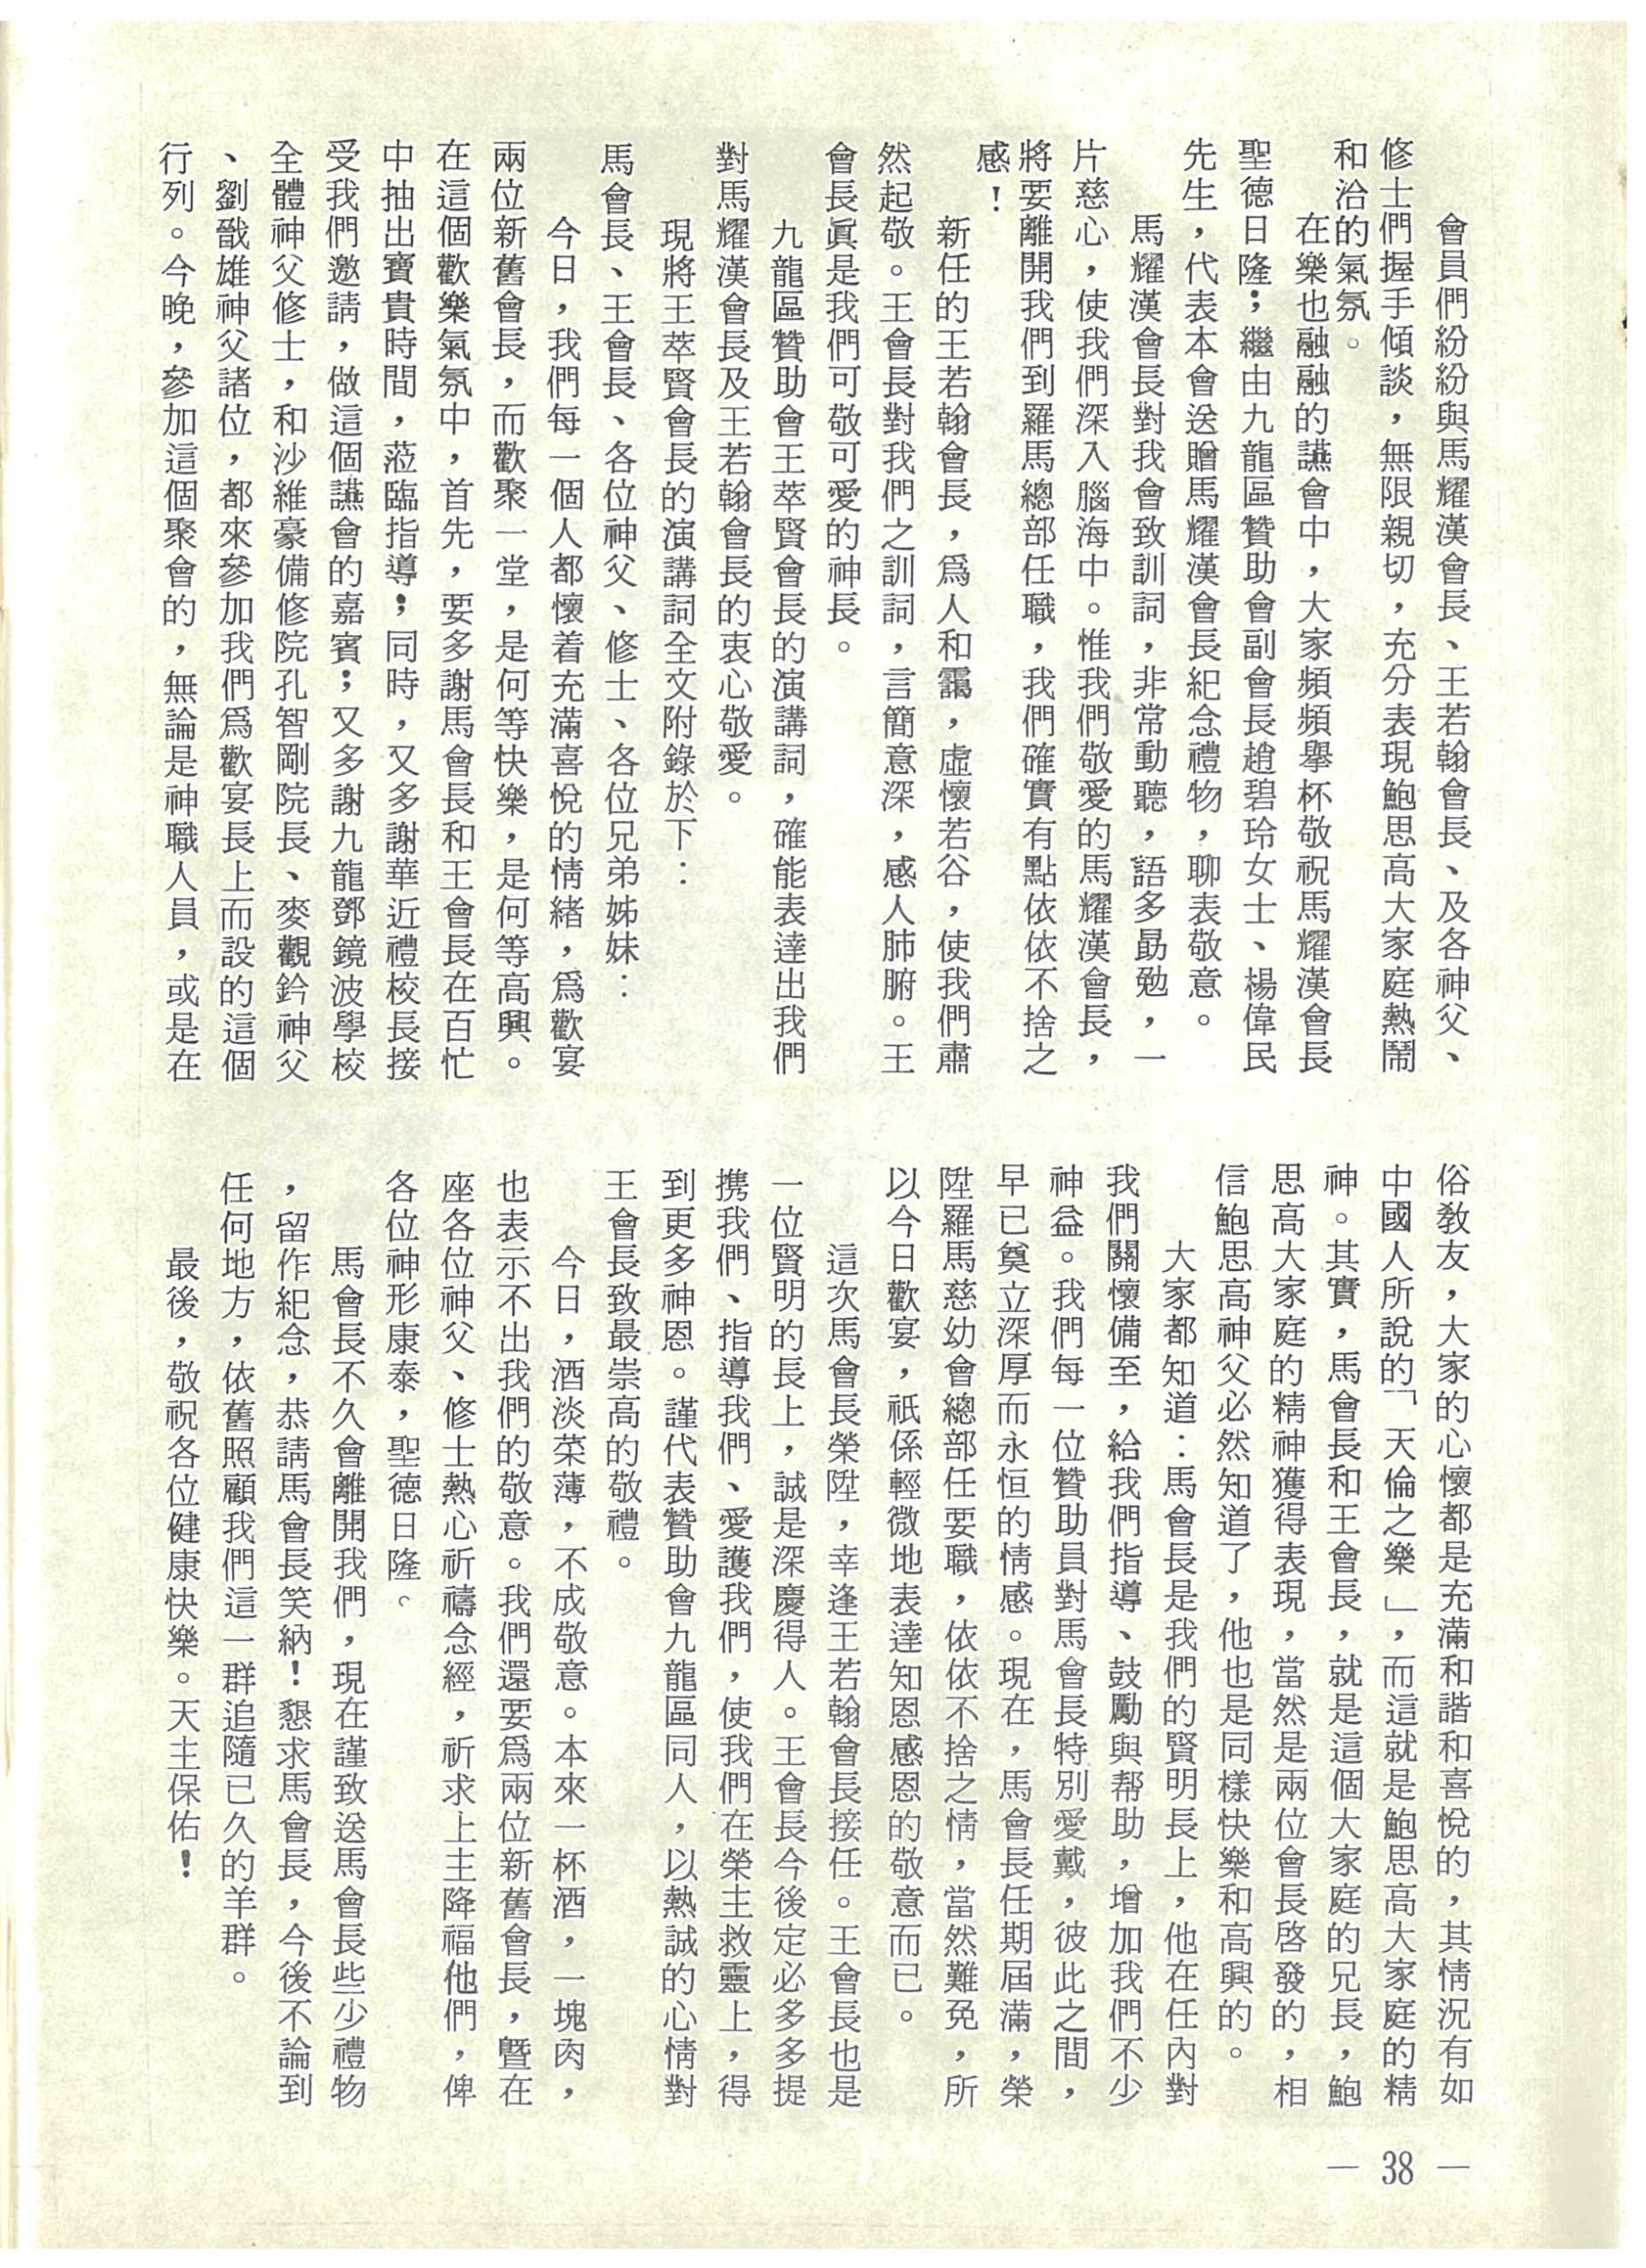 會員們紛紛與馬耀漢會長、王若翰會長、及各神父、
修士們握手傾談，無限親切，充分表現鮑思高大家庭熱鬧
和洽的氣氛。
在樂也融融的讌會中，大家頻頻舉杯敬祝馬耀漢會長
聖德日隆；繼由九龍區贊助會副會長趙碧玲女士、楊偉民
先生，代表本會送贈馬耀漢會長紀念禮物，聊表敬意。
馬耀漢會長對我會致訓詞，非常動聽，語多勗勉，一
片慈心，使我們深入腦海中。惟我們敬愛的馬耀漢會長，
將要離開我們到羅馬總部任職，我們確實有點依依不捨之
感！
新任的王若翰會長，爲人和靄，虛懷若谷，使我們肅
然起敬。王會長對我們之訓詞，言簡意深，感人肺腑。王
會長眞是我們可敬可愛的神長。
九龍區贊助會王萃賢會長的演講詞，確能表達出我們
對馬耀漢會長及王若翰會長的衷心敬愛。
現將王萃賢會長的演講詞全文附錄於下：
馬會長、王會長、各位神父、修士、各位兄弟姊妹：
今日，我們每一個人都懷着充滿喜悅的情緒，爲歡宴
兩位新舊會長，而歡聚一堂，是何等快樂，是何等高興。
在這個歡樂氣氛中，首先，要多謝馬會長和王會長在百忙
中抽出寶貴時間，蒞臨指導；同時，又多謝華近禮校長接
受我們邀請，做這個讌會的嘉賓；又多謝九龍鄧鏡波學校
全體神父修士，和沙維豪備修院孔智剛院長、麥觀鈐神父
、劉戩雄神父諸位，都來參加我們爲歡宴長上而設的這個
行列。今晚，參加這個聚會的，無論是神職人員，或是在
俗教友，大家的心懷都是充滿和諧和喜悅的，其情況有如
中國人所說的「天倫之樂」，而這就是鮑思高大家庭的精
神。其實，馬會長和王會長，就是這個大家庭的兄長，鮑
思高大家庭的精神獲得表現，當然是兩位會長啓發的，相
信鮑思高神父必然知道了，他也是同樣快樂和高興的。
大家都知道：馬會長是我們的賢明長上，他在任內對
我們關懷備至，給我們指導、鼓勵與帮助，增加我們不少
神益。我們每一位贊助員對馬會長特別愛戴，彼此之間，
早已奠立深厚而永恒的情感。現在，馬會長任期屆滿，榮
陞羅馬慈幼會總部任要職，依依不捨之情，當然難免，所
以今日歡宴，祇係輕微地表達知恩感恩的敬意而已。
這次馬會長榮陞，幸逢王若翰會長接任。王會長也是
一位賢明的長上，誠是深慶得人。王會長今後定必多多提
携我們、指導我們、愛護我們，使我們在榮主救靈上，得
到更多神恩。謹代表贊助會九龍區同人，以熱誠的心情對
王會長致最崇高的敬禮。
今日，酒淡菜薄，不成敬意。本來一杯酒，一塊肉，
也表示不出我們的敬意。我們還要爲兩位新舊會長，曁在
座各位神父、修士熱心祈禱念經，祈求上主降福他們，俾
各位神形康泰，聖德日隆。
馬會長不久會離開我們，現在謹致送馬會長些少禮物
，留作紀念，恭請馬會長笑納！懇求馬會長，今後不論到
任何地方，依舊照顧我們這一群追隨已久的羊群。
最後，敬祝各位健康快樂。天主保佑！
— 38 —